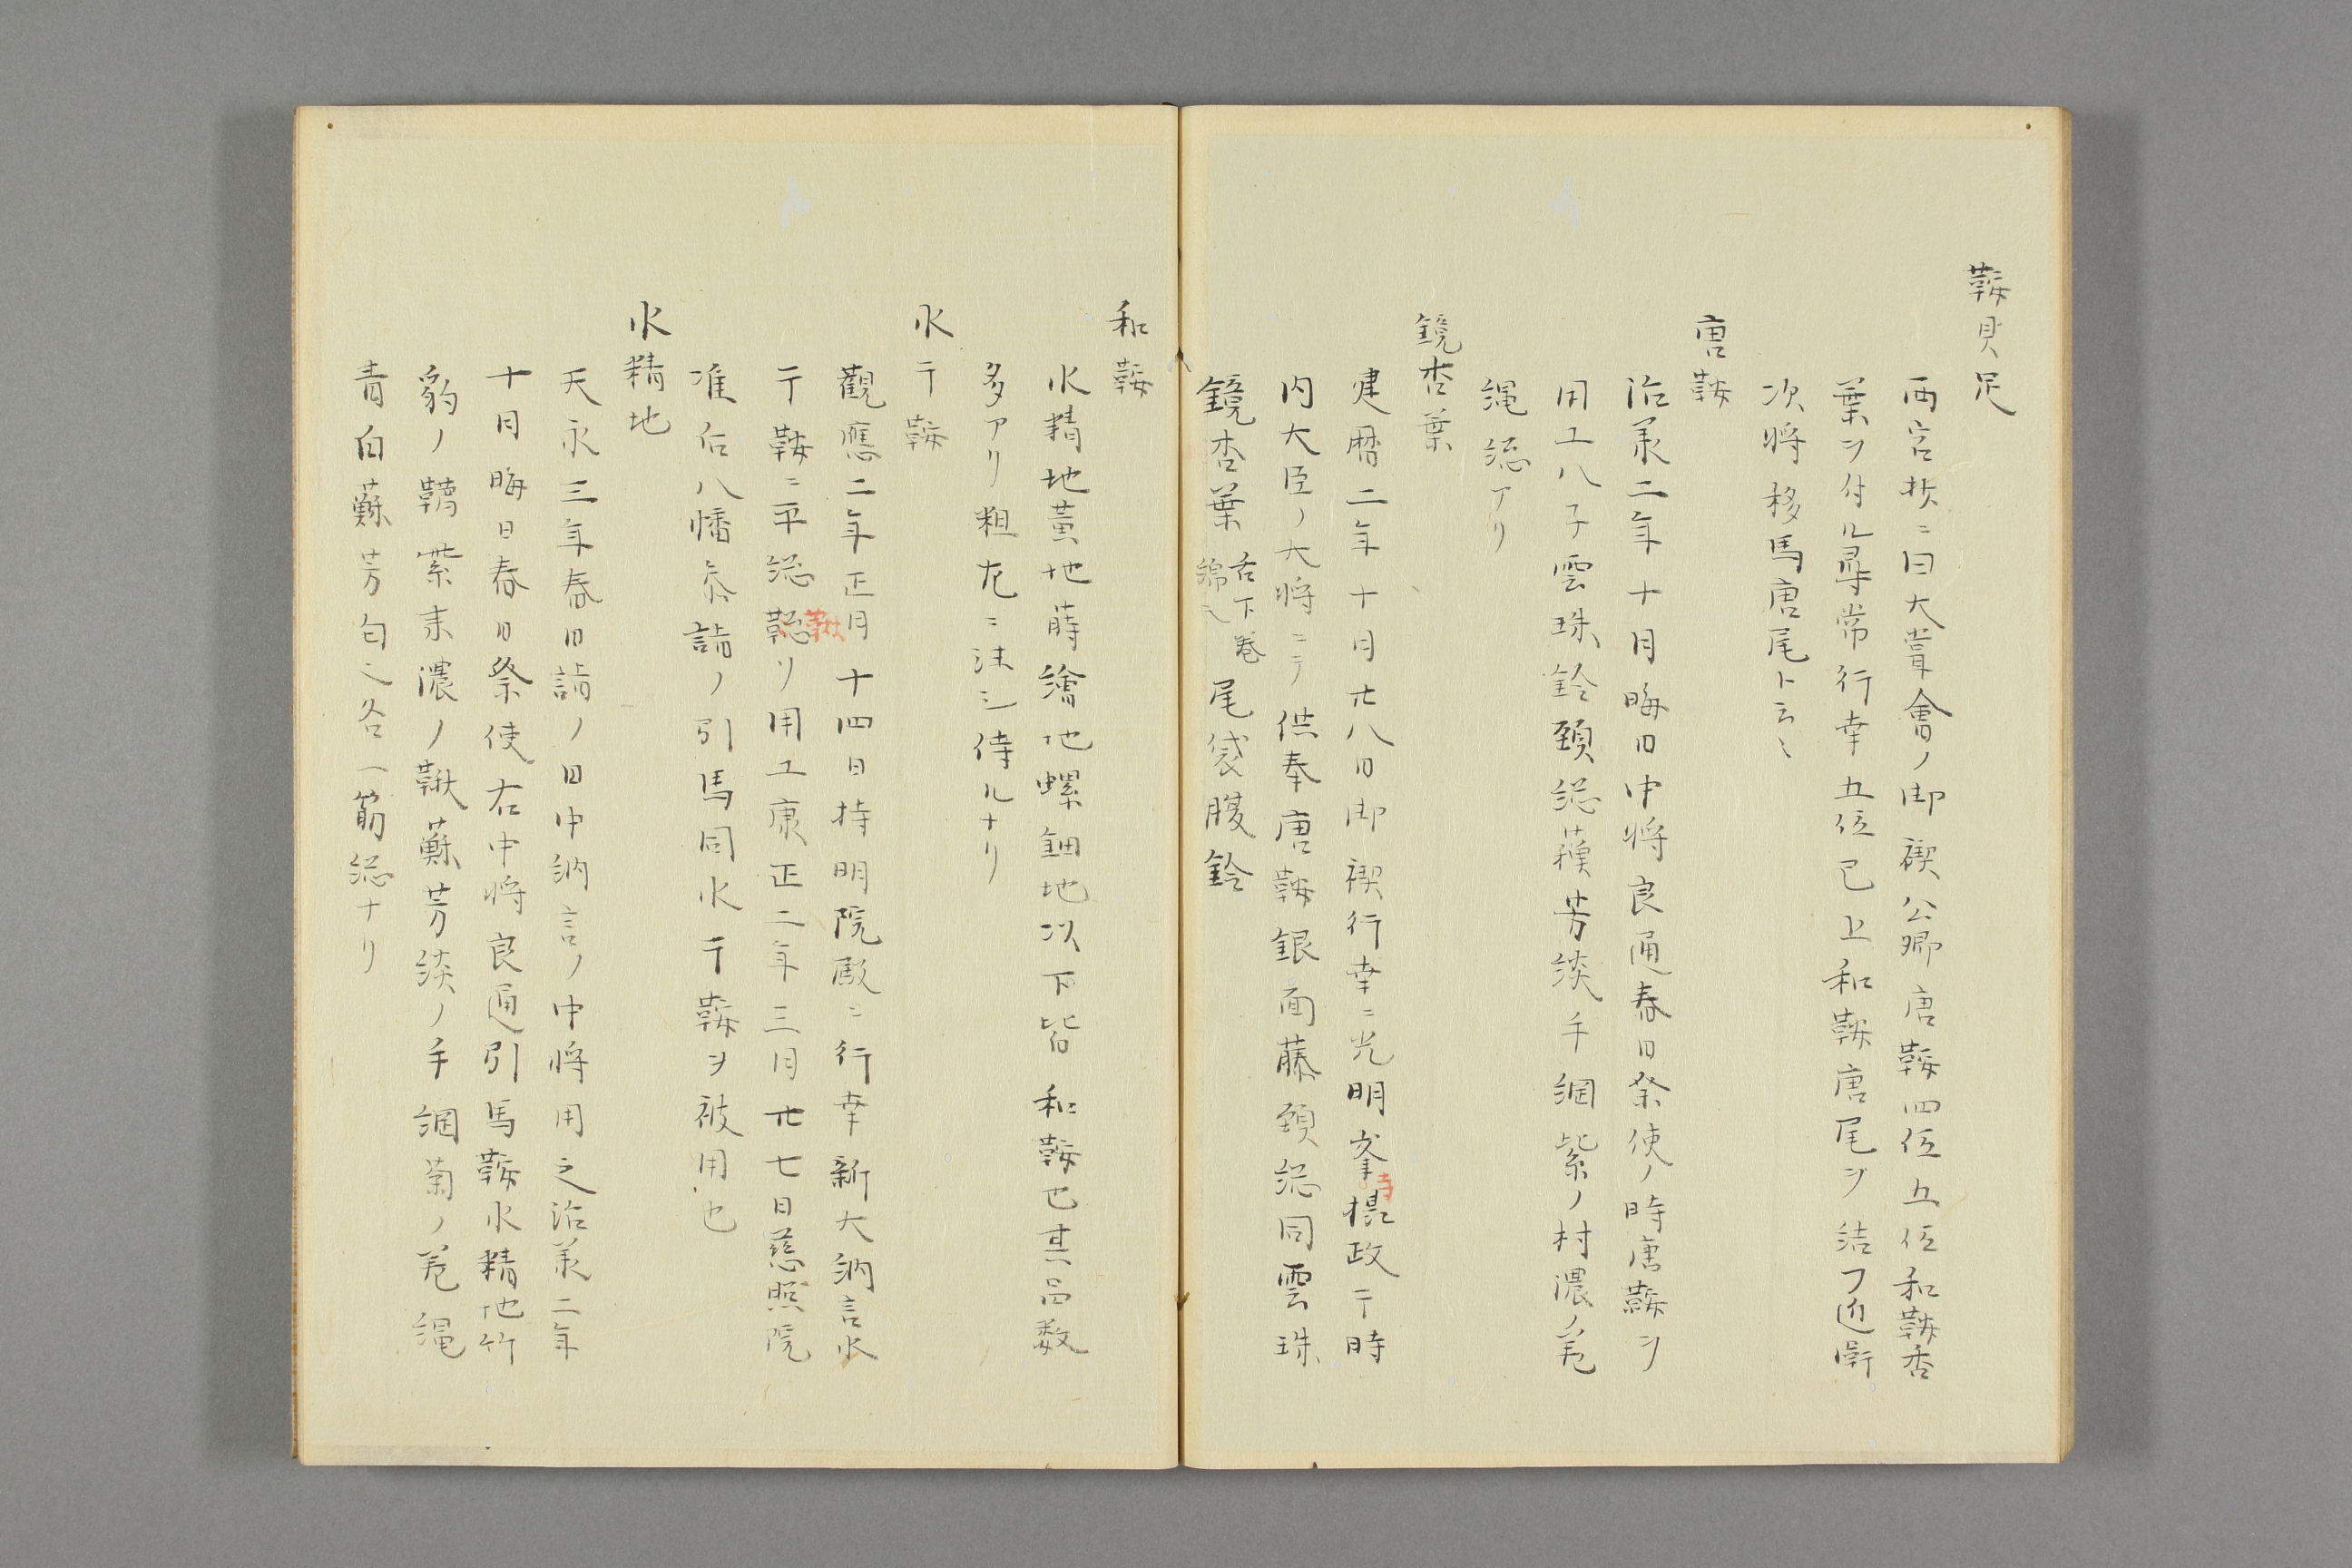 鞍具足
西宮抄ニ曰大嘗會ノ御禊公卿唐鞍四位五位和鞍杏
葉ヲ付ル尋常行幸五位已上和鞍唐尾ヲ結フ近衛
次将移馬唐尾ト云々
唐鞍
治承二年十月晦日中将良通春日祭使ノ時唐鞍ヲ
用ユ八子雲珠鈴頚総蘓芳淡手綱紫ノ村濃ノ差
縄総アリ
鏡杏葉
建暦二年十月廿八日御禊行幸ニ光明峯寺摂政于時
内大臣ノ大将ニテ供奉唐鞍銀面藤頚総同雲珠
鏡杏葉 右下巻綿之 尾袋腹鈴
和鞍
水精地黄地蒔繪地螺鈿地以下皆和鞍也其品数
多アリ粗左ニ注シ侍ルナリ
水干鞍
觀應二年正月十四日持明院殿ニ行幸新大納言水
干鞍ニ平総鞦リ用ユ康正二年三月廿七日慈照院
准后八幡参詣ノ引馬同水干鞍ヲ被用也
水精地
天永三年春日詣ノ日中納言ノ中将用之治承二年
十月晦日春日祭使右中将良通引馬鞍水精地竹
豹ノ韉紫末濃ノ鞦蘓芳淡ノ手綱菊ノ差縄
青白蘓芳匂之各一筋総ナリ